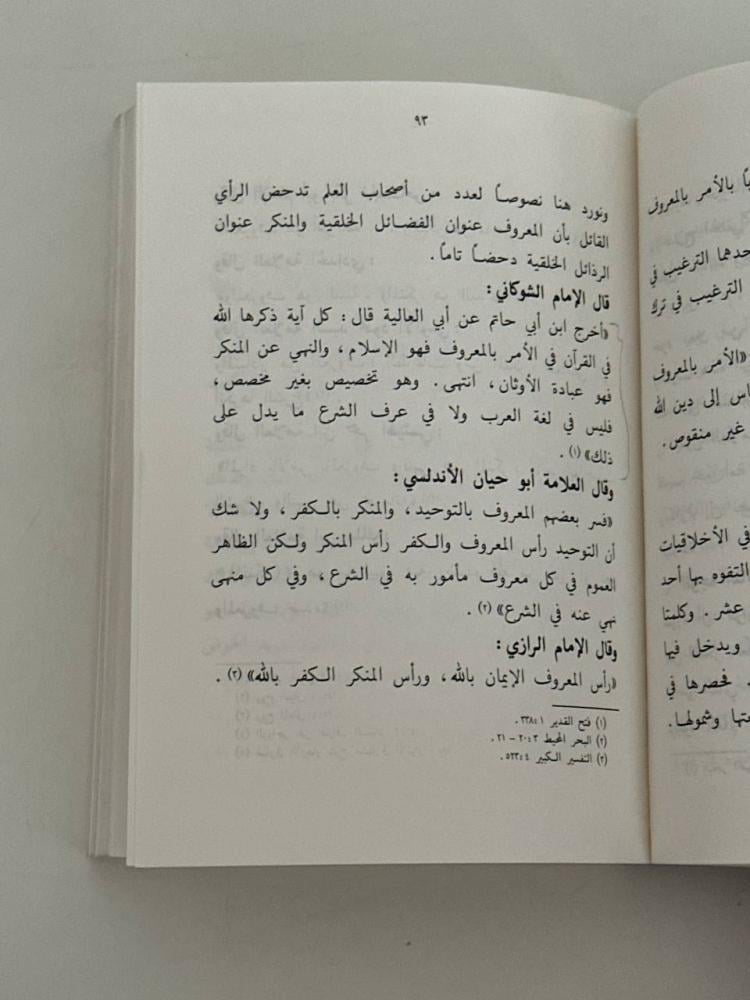 ٩٣
ونورد هنا نصوصاً لعدد من أصحاب العلم تدحض الرأي
القائل بأن المعروف عنوان الفضائل الخلقية والمنكر عنوان
الرذائل الخلقية دحضاً تاماً.
قال الإمام الشوكاني:
«أخرج ابن أبي حاتم عن أبي العالية قال: كل آية ذكرها الله
في القرآن في الأمر بالمعروف فهو الإسلام، والنهي عن المنكر
فهو عبادة الأوثان، انتهى. وهو تخصيص بغير مخصص،
فليس في لغة العرب ولا في عرف الشرع ما يدل على
ذلك» (١).
وقال العلامة أبو حيان الأندلسي:
«فسر بعضهم المعروف بالتوحيد، والمنكر بالكفر، ولا شك
أن التوحيد رأس المعروف والكفر رأس المنكر ولكن الظاهر
العموم في كل معروف مأمور به في الشرع، وفي كل منهى
نهي عنه في الشرع» (٢).
وقال الإمام الرازي:
«رأس المعروف الإيمان بالله، ورأس المنكر الكفر بالله» (٣).
(١) فتح القدير ١: ٣٣٨.
(٢) البحر المحيط ٣: ٢٠ – ٢١.
(٣) التفسير الكبير ٤: ٥٢٣.
بالأمر بالمعروف
الترغيب في
الترغيب في ترك
«الأمر بالمعروف
إلى دين الله
غير منقوص.
في الأخلاقيات
التفوه بها أحد
عشر. وكلمتا
ويدخل فيها
. فحصرها في
وشمولها.